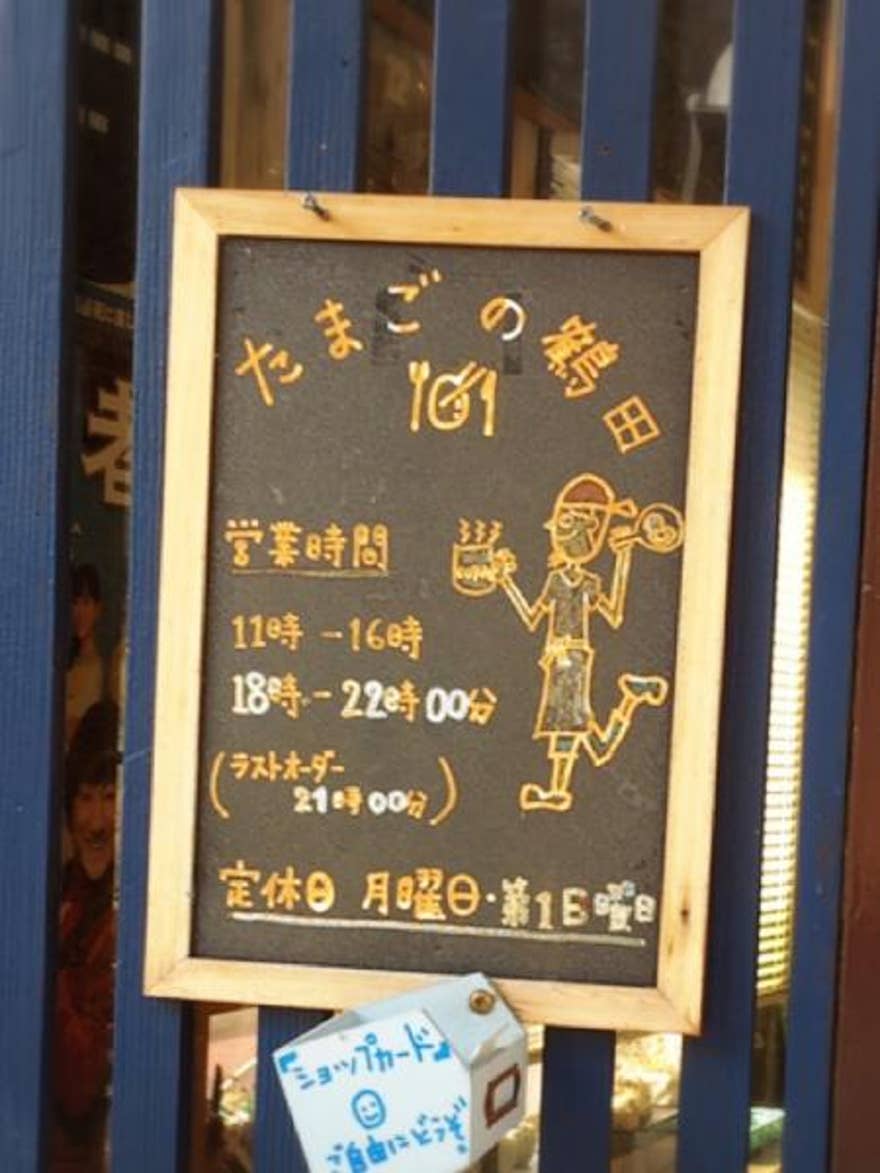 たまごの鶴田
営業時間
11時-16時
18時-22時00分
(ラストオーダー
21時00分)
定休日 月曜日・第1日曜日
『ショップカード』
ご自由にどうぞ